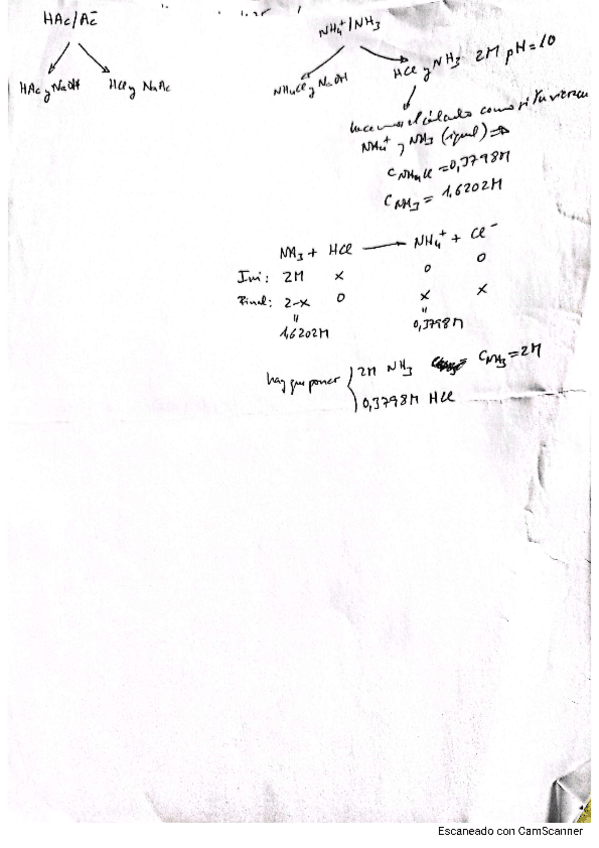 HAc/Ac⁻
HAc y NaOH
HCl y NaAc
NH₄⁺/NH₃
NH₄Cl y NaOH
HCl y NH₃ 2M pH=10
hacemos el cálculo como si tuvieran
NH₄⁺ y NH₃ (igual) ⇒
C NH₄Cl = 0,3798M
C NH₃ = 1,6202M
NH₃ + HCl ⟶ NH₄⁺ + Cl⁻
Ini: 2M x 0 0
Final: 2-x 0 x x
" "
1,6202M 0,3798M
hay que poner
2M NH₃ C NH₃ = 2M
0,3798M HCl
Escaneado con CamScanner